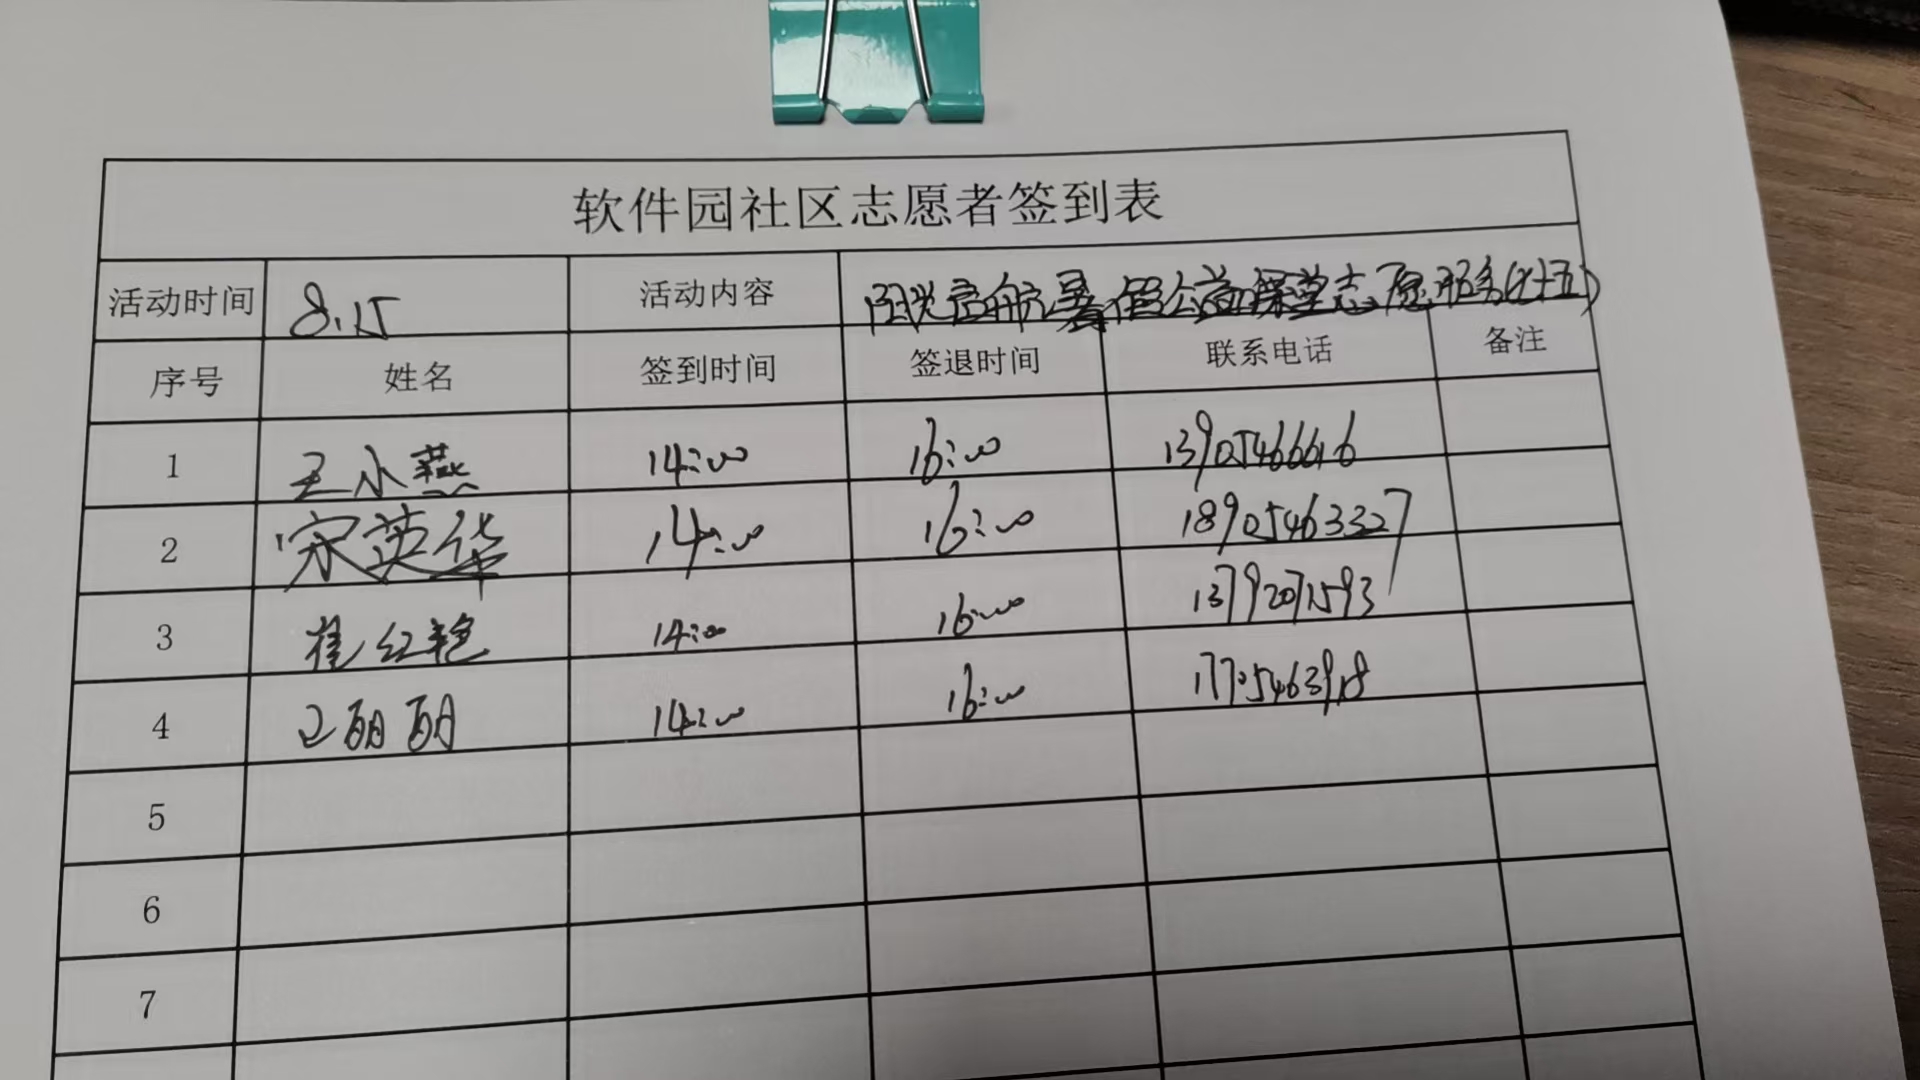 软件园社区志愿者签到表
活动时间 8.15 活动内容 阳光启航暑假公益课堂志愿服务(十五)
序号 姓名 签到时间 签退时间 联系电话 备注
1 王小燕 14:00 16:00 13905466616
2 宋英华 14:00 16:00 18905463327
3 桂红艳 14:00 16:00 13792071593
4 王丽丽 14:00 16:00
5
6
7